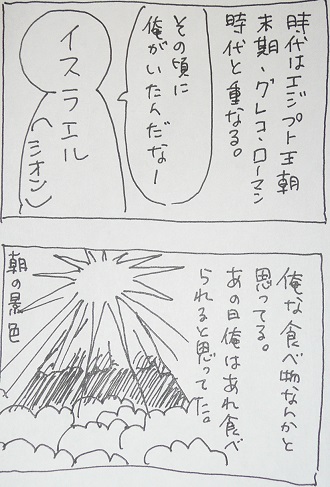 時代はエジプト王朝
末期、グレコ・ローマン
時代と重なる。
その頃に
俺がいたんだなー
イスラエル
(シオン)
俺な食べ物なんかと
思ってる。
あの日俺はあれ食べ
られると思ってた。
朝の景色